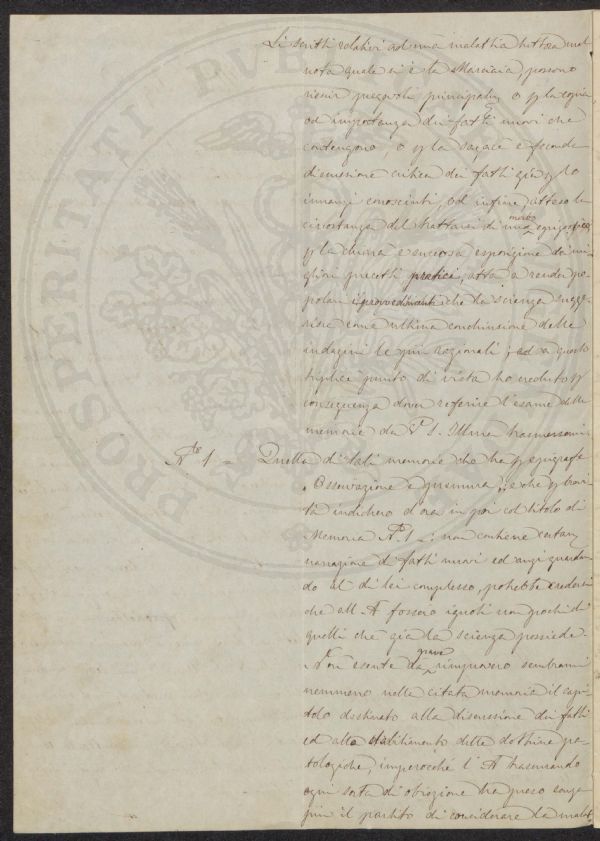 Li scritti relativi ad una malattia tuttora mal
nota quale si è la Moniaia, possono
venir pregevoli principalm. o p la copia,
od importanza dei fatti nuovi che
contengono, o p la sagace e feconda
discussione critica dei fatti già p lo
innanzi conosciuti, od infine, atteso la
circostanza del trattarsi di morbo epizootico,
p la chiara e succosa esposizione dei mi
gliori precetti pratici, atta a render po
polari i provvedimenti che la scienza sugge
risce come ultima conchiusione delle
indagini le più razionali; ed a questo
triplice punto di vista ho creduto p
conseguenza dover riferire l'esame delle
memorie da V S. Illma trasmessemi.
N.º 1 = Quella di tali memorie che ha p epigrafe
"Osservazione e premura", e che p brevi
tà indicherò d'ora in poi col titolo di
Memoria N.º 1 -: non contiene certam.
narrazione di fatti nuovi ed anzi guardan
do al di lei complesso, potrebbe credersi
che all'A fossero ignoti non pochi di
quelli che già la scienza possiede.
Non esente da grave rimprovero sembrami
nemmeno nella citata memoria il capi
tolo destinato alla discussione dei fatti
ed allo stabilimento delle dottrine pa
tologiche, imperocchè l'A trascurando
ogni sorta di obiezione ha preso sempre
più il partito di considerare la malat
PROSPERITATI PUB